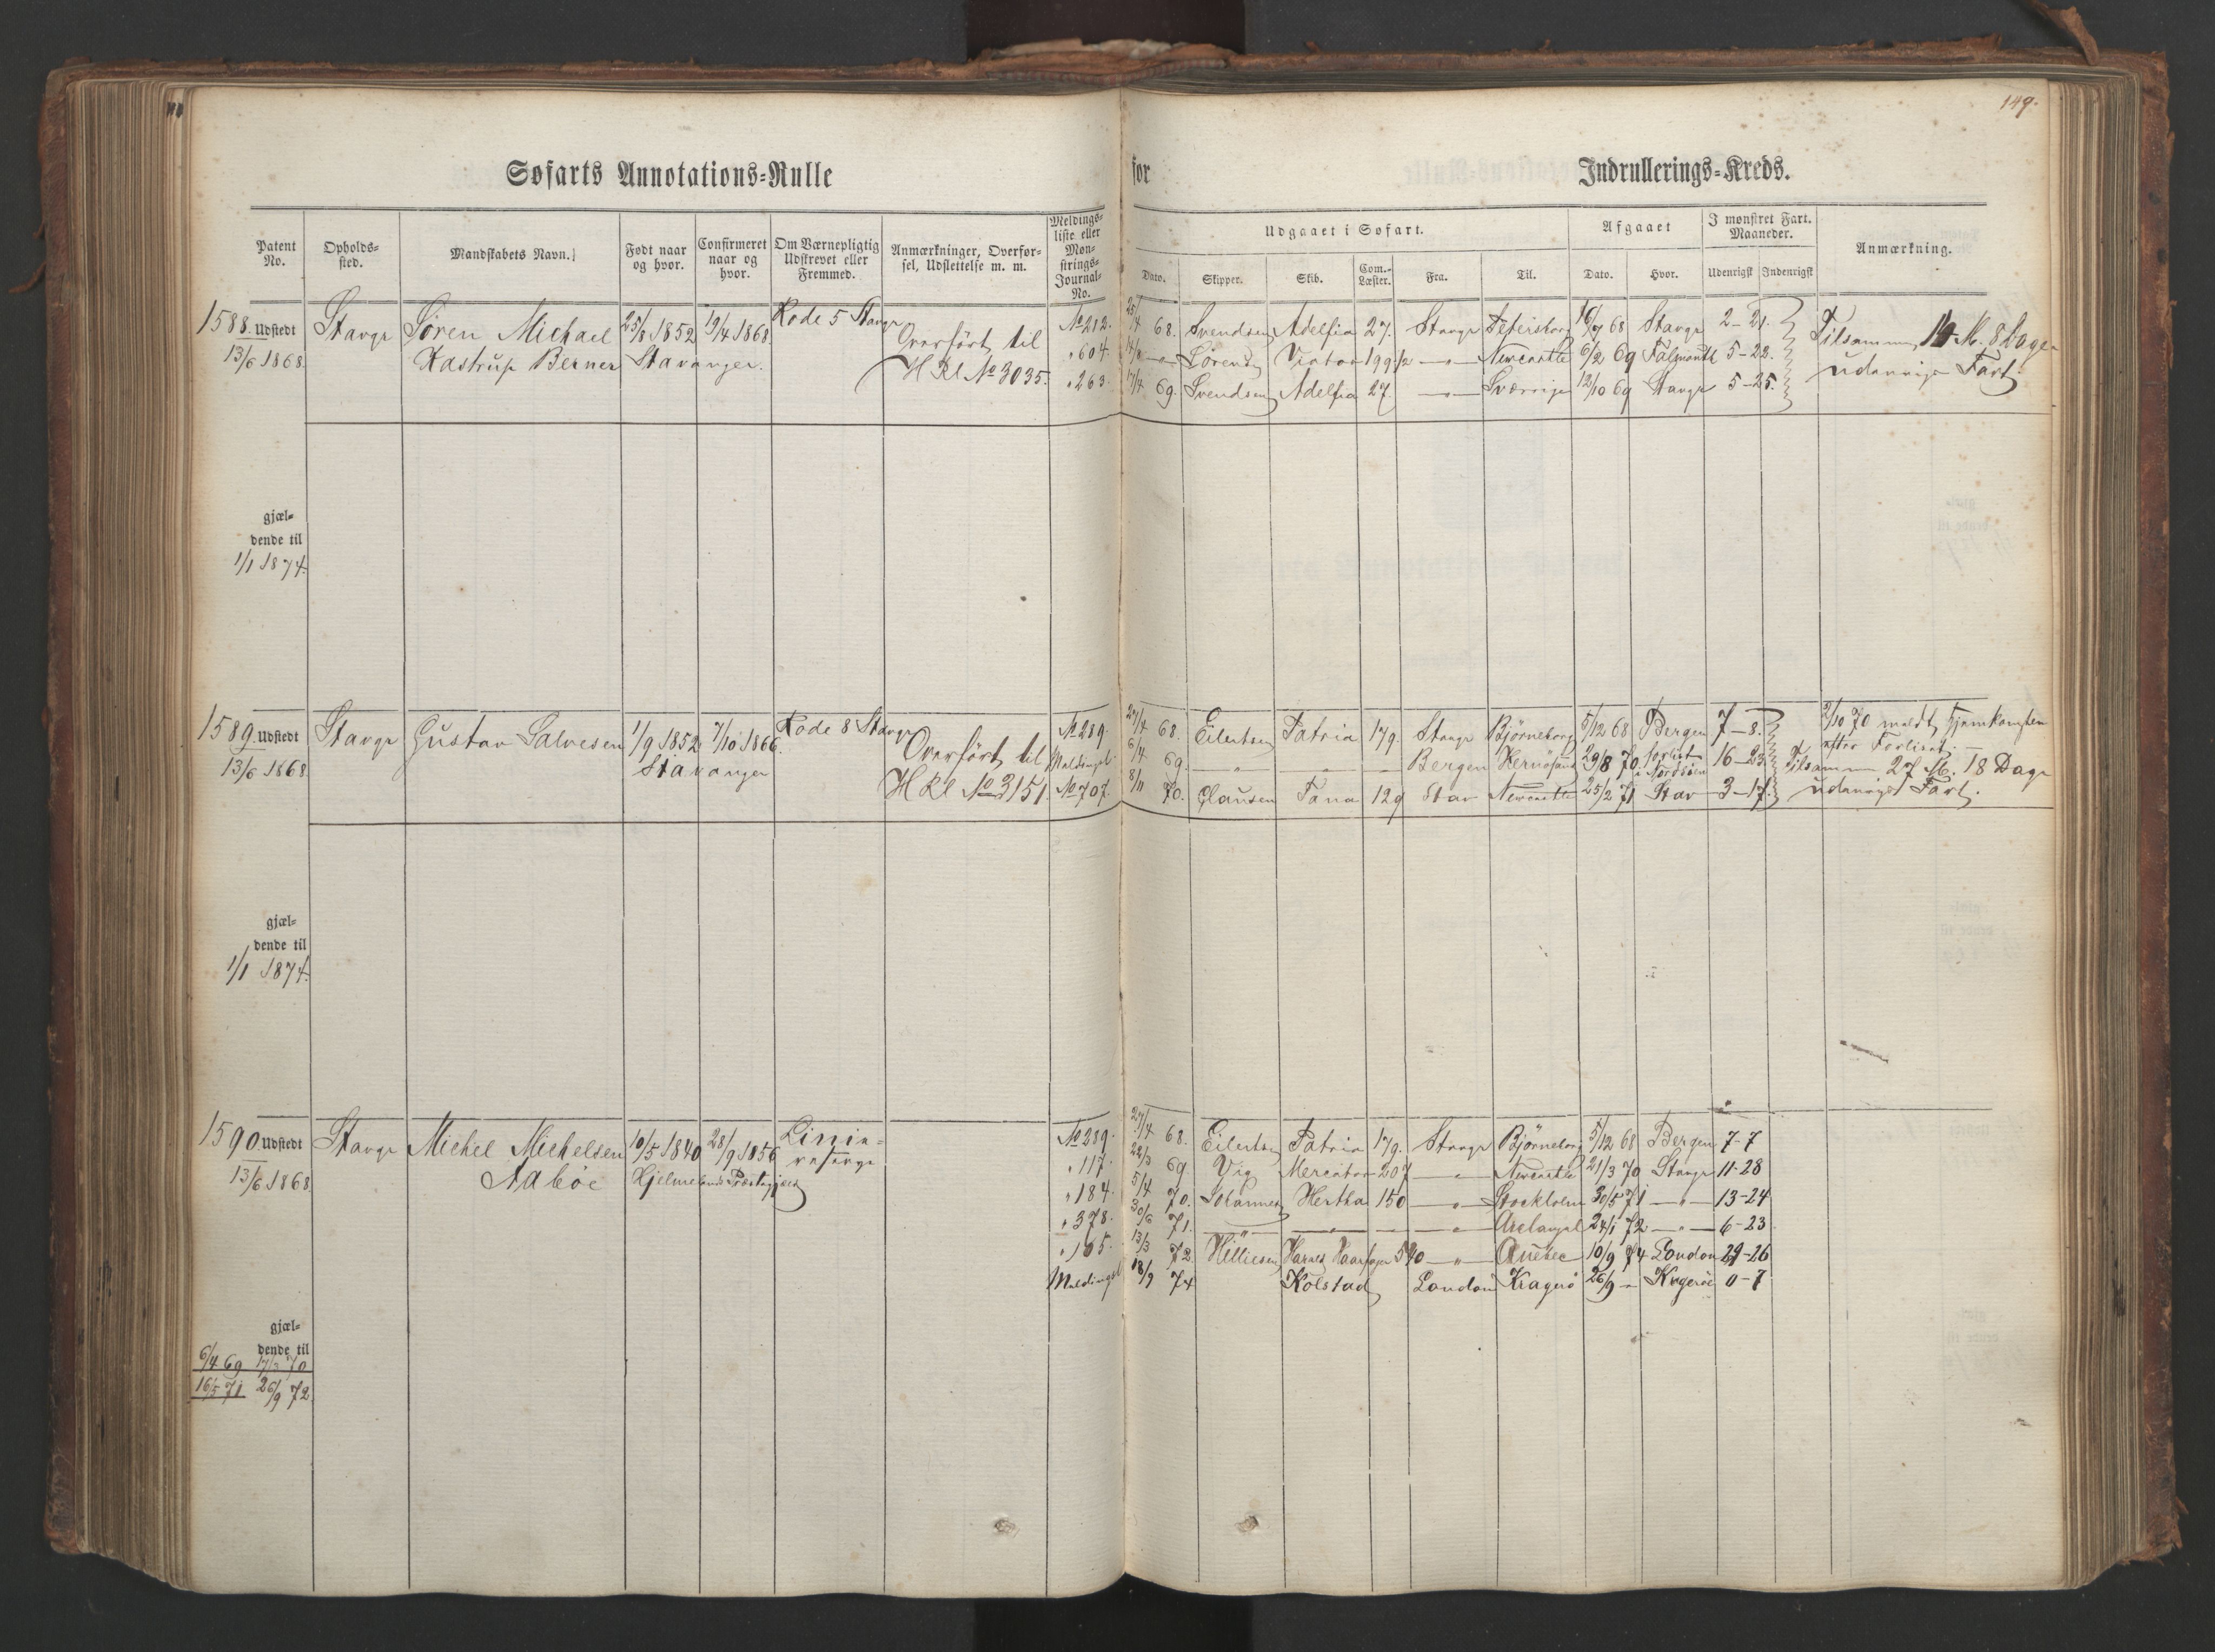 149.
Søfarts Annotations-Rulle for Indrullerings-Kreds.
Patent No.
Opholds-sted.
Mandskabets Navn.
Født naar og hvor.
Confirmeret naar og hvor.
Om Værnepligtig Udskrevet eller Fremmed.
Anmærkninger, Overførsel, Udslettelse m. m.
Meldings-liste eller Mønstrings-Journal-No.
Udgaaet i Søfart.
Dato. Skipper. Skib. Com.-Læster. Fra. Til.
Afgaaet
Dato. Hvor.
I mønstret Fart. Maaneder.
Udenrigsk Indenrigsk
Anmærkning.
1588. Udstedt Stavgr Søren Michael 25/8 1852 19/4 1868 Rode 5 Stavgr
13/6 1868. Kastrup Berner Stavanger.
Overført til
H Rl No 3035.
No 212. 25/4 68. Svendsen Adelfia 27. Stavgr Petersborg 16/7 68 Stavgr 2-21.
" 604. Sørens Victor 199 1/2 — " — Newcastle 6/2 69 Falmouth 5-22.
" 263. 17/4 69. Svendsen Adelfia 27. — " — Sverrige 12/10 69 Stavgr 5-25.
Tilsammen 14 M. 8 Dage
udenrigs Fart.
gjæl-
dende til
1/1 1874.
1589. Udstedt Stavgr Gustav Salvesen 1/9 1852 7/10 1866. Rode 8 Stavgr
13/6 1868. Stavanger
Overført til
H Rl No 3151.
No 289. 27/4 68. Eilertsen Patria 179. Stavgr Björneborg 5/12 68 Bergen 7-8.
Meldingsl. 6/4 69. — " — — Bergen Hernösand 29/8 70 forlist i Nordsöen 16-23.
No 707. 8/11 70. Clausen Fana 129 Stav Newcastle 25/2 71 Stav 3-17.
2/10 70 meldt Hjemkomsten
efter Forliset. —
Tilsammen 27 M. 18 Dage
udenrigs Fart.
gjæl-
dende til
1/1 1874.
1590 Udstedt Stavgr Michel Michelsen 10/5 1840 28/9 1856 Linie-
13/6 1868. Aaböe Hjelmelands Præstegjæld reserve
No 289. 27/4 68. Eilertsen Patria 179. Stavgr Björneborg 5/12 68 Bergen 7-7
" 117. 22/3 69. Vig Mercator 207 — " — Newcastle 21/3 70 Stavgr 11-28
" 184. 5/4 70. Johannes Hertha 150 — " — Stockholm 30/5 71 — " — 13-24
" 378. 30/6 71. — " — — — " — Archangel 24/1 72 — " — 6-23
" 105. 13/3 72. Harald Haarfager 540 — " — Quebec 10/9 74 London 29-26
Meldingsl 18/9 74 Kolstad London Kragerö 26/9 — Krageröe 0-7
gjæl-
dende til
6/4 69 17/3 70
16/5 71 26/9 72.